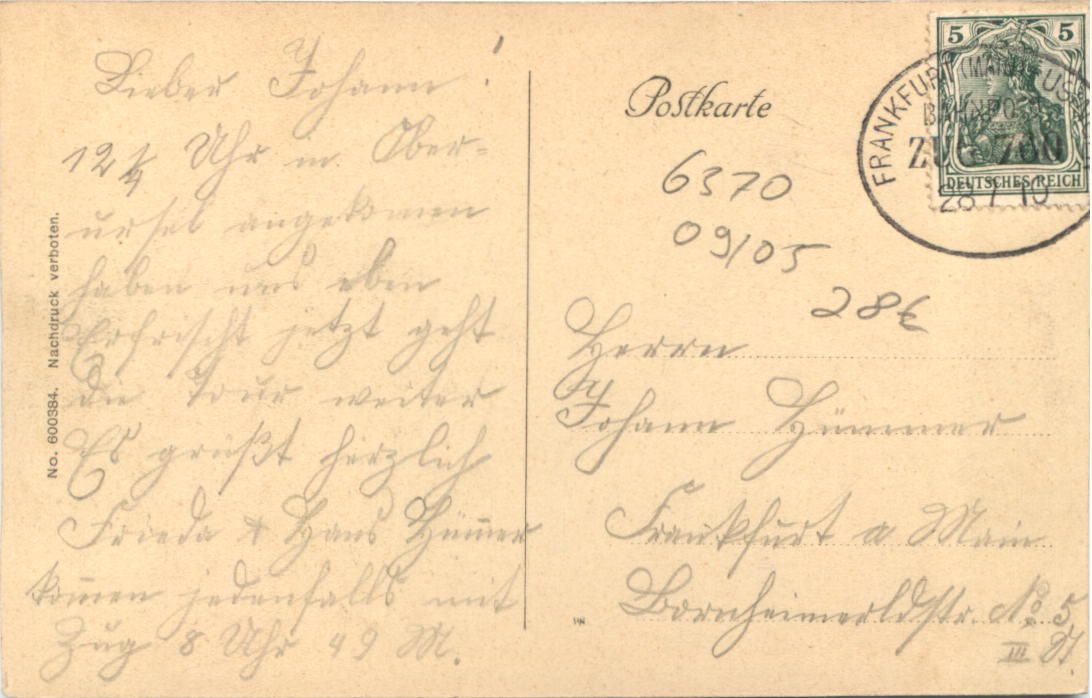 Lieber Johann!
12 1/4 Uhr in Ober-
ursel angekomen
haben uns eben
Erfrischt jetzt geht
die Tour weiter
Es grüßt herzlich
Frieda & Hans Hüm̄er
kom̄en jedenfalls mit
Zug 8 Uhr 49 M.
No. 600384. Nachdruck verboten.
Postkarte
5 5
DEUTSCHES REICH
FRANKFURT (MAIN)
BAHNPOST
ZUG 760
28 7 10
6370
09/05
28€
Herrn
Johann Hümmer
Frankfurt a Main
Bornheimerldstr. No. 5
III St